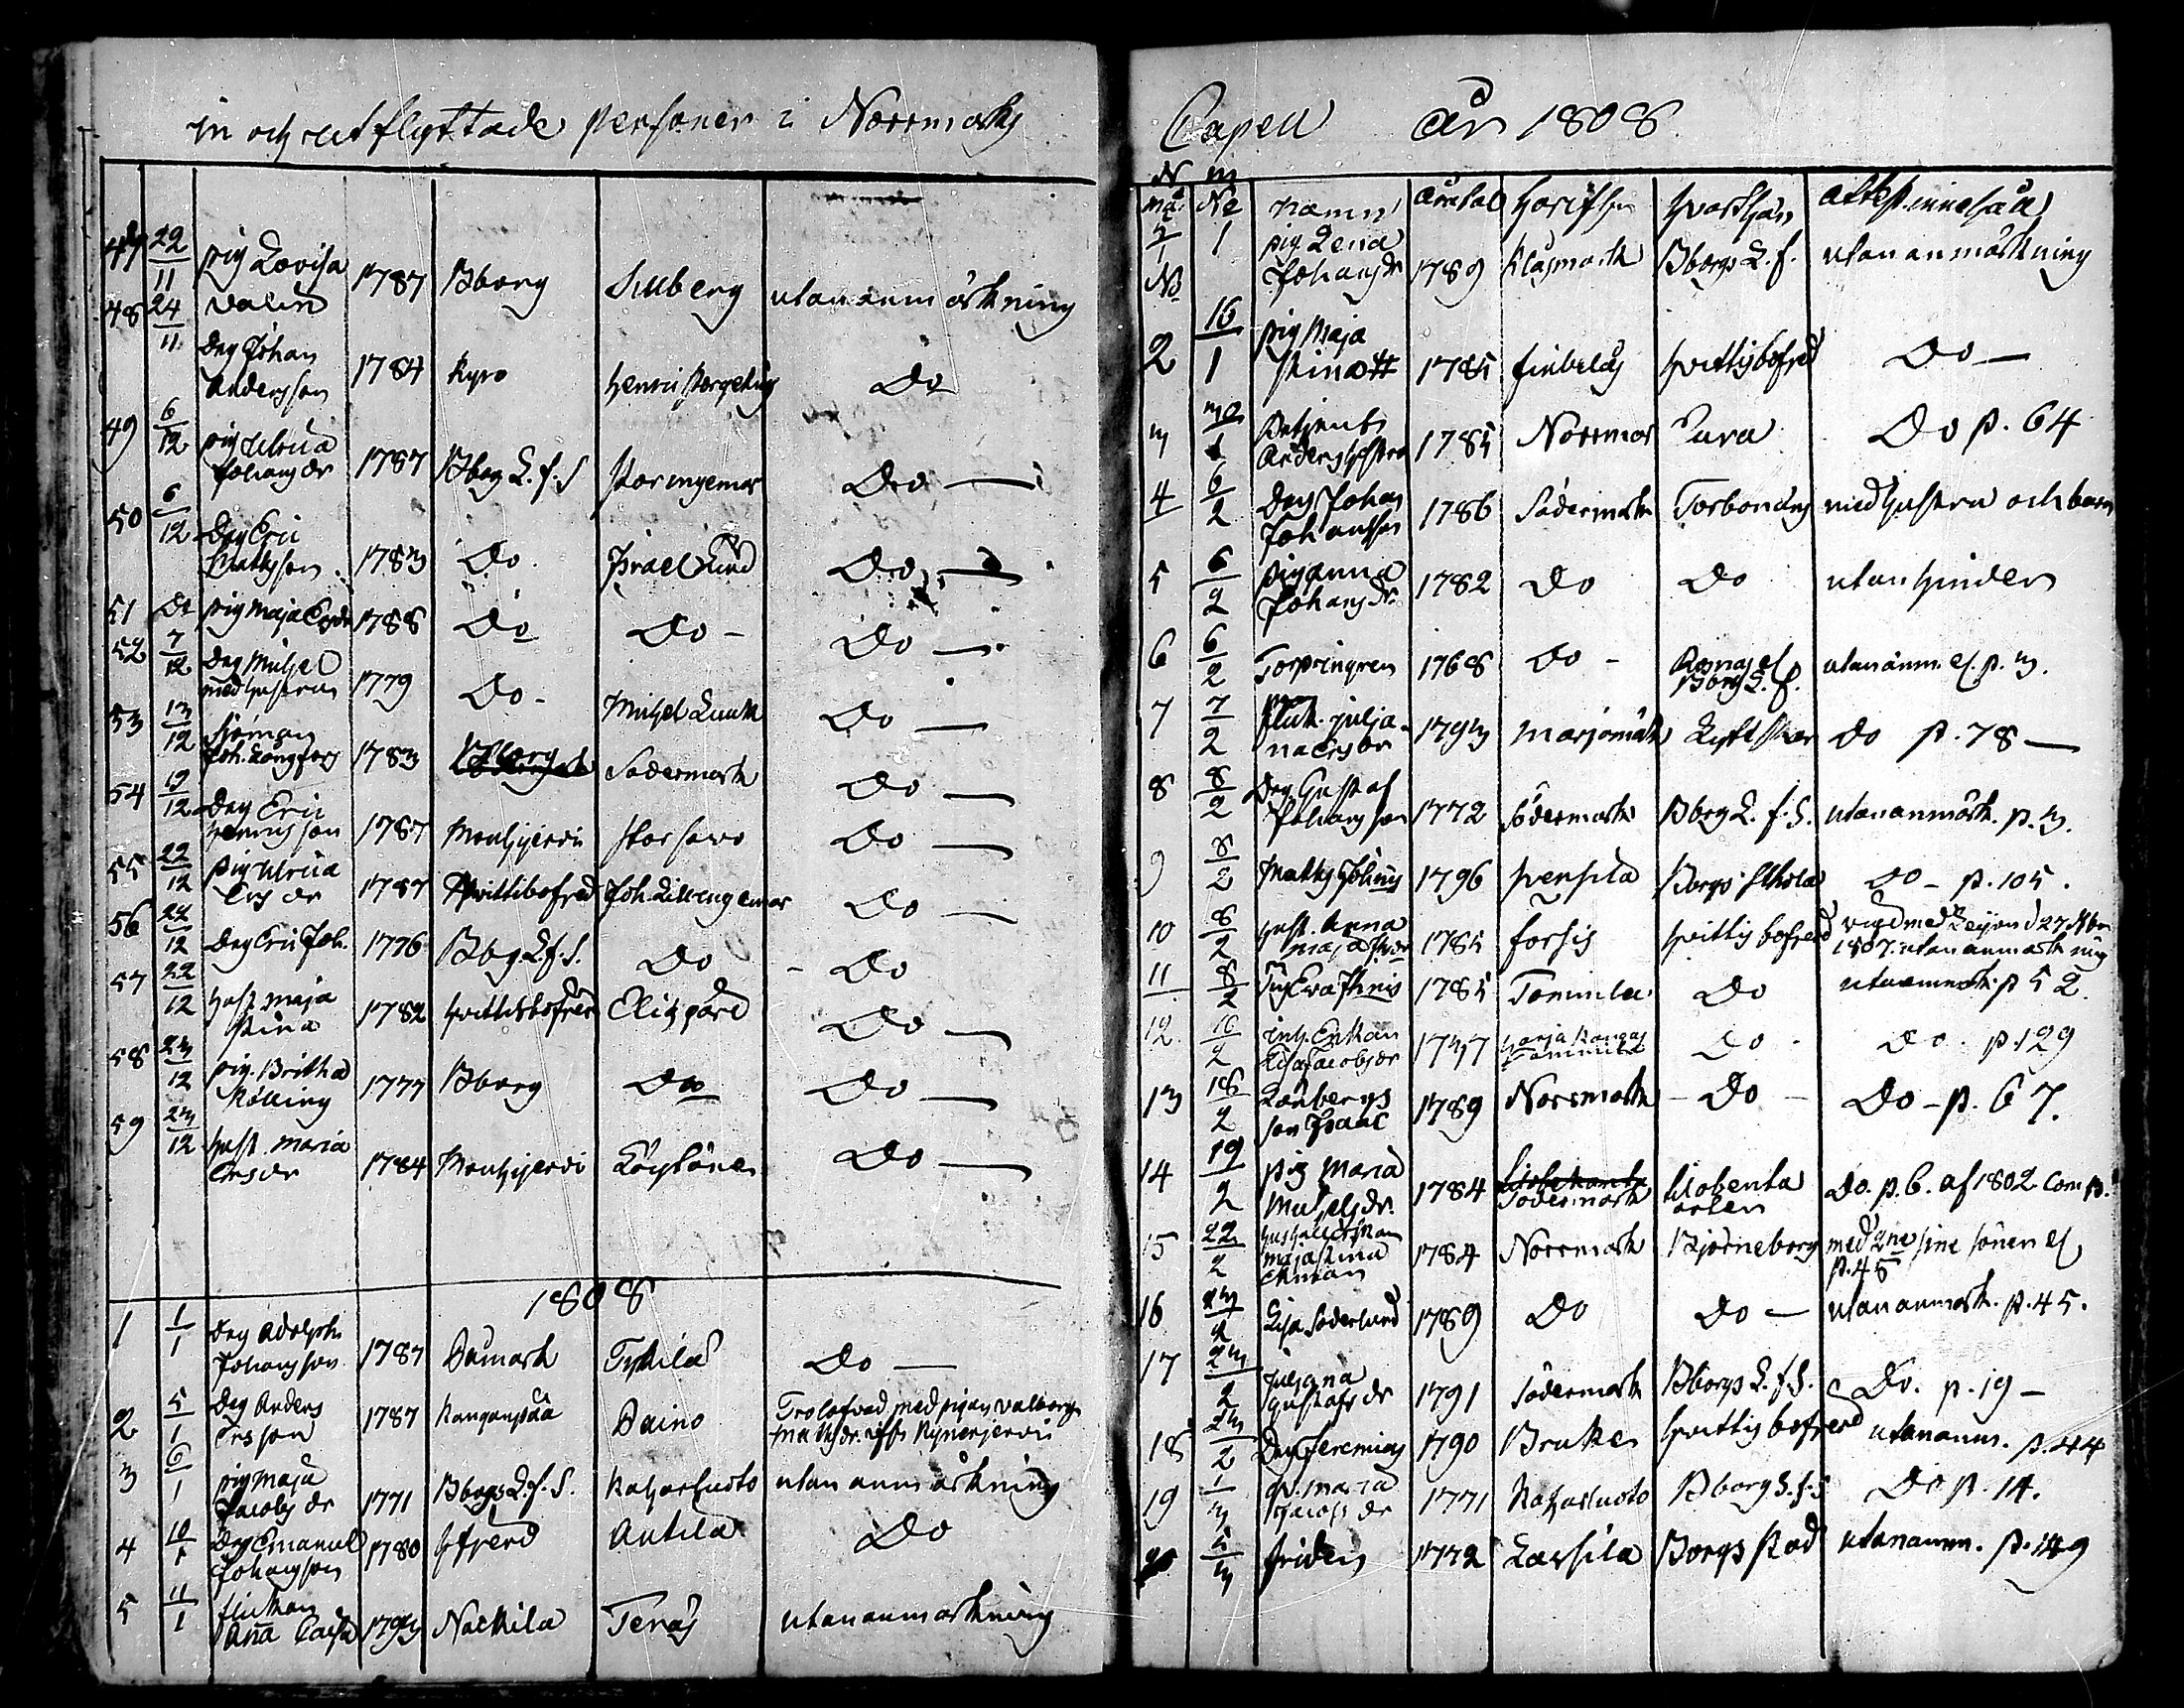 in och utflyttade personer i Norrmarks
47 22/11 pig Lovisa Valin 1787 Bborg Suuberg utan anmärkning
48 24/11 Drg Johan Andersson 1784 Kyro Henric Do
49 6/12 pig Ulrica Johansdr 1787 Bborg L.f.S Storingemar Do —
50 6/12 Drg Eric Mattsson 1783 Do Israel Lind Do —
51 Do pig Maja Ersdr 1788 Do Do - Do —
52 7/12 Drg Michel med hustrun 1779 Do - Michel Do —
53 13/12 Sjöman Joh. Långfors 1783 Bborg Södermark Do —
54 19/12 Drg Eric Henricsson 1787 Mouhijervi Storsavo Do —
55 22/12 pig Ulrica Ersdr 1787 Hvittisbofjerd Joh. Lillingemar Do —
56 22/12 Drg Eric Joh. 1776 Bbg L.f.S. Do - Do
57 22/12 Hust. Maja Stina 1782 Hvittisbofjerd Eligård Do —
58 23/12 pig. Britha Kölling 1777 Bborg Do Do —
59 23/12 Hust. Maria Ersdr 1784 Mouhijervi Do —
1808
1 1/1 Drg Adolph Johansson 1787 Påmark Tykilä Do —
2 5/1 Drg Anders Ersson 1787 Kangansää Paino Trolofvad med pigan Valborg Mattsdr ifr. Kynerjervi
3 6/1 pig Maja Jacobsdr 1771 Bborgs L.f.S. Katzarluoto utan anmärkning
4 10/1 Drg Emanuel Johansson 1780 Sfjerd Antila Do
5 11/1 flickan Aña Caisa 1793 Nackila Teräs utan anmärkning
Capell år 1808
N m
må: Ne namn årtal hvarifrån hvarthän attest. innehåll
1 pig Lena Johansdr 1789 Klåsmark Bborgs L.f. utan anmärkning
2 16/1 pig Maja Stina 1785 Finbelås Hvittisbofjerd Do —
3 30/1 Anders hustru 1785 Norrmar Lura Do p. 64
4 6/2 Drg Johan Johansson 1786 Södermark Torbonäs med hustru och barn
5 6/2 pig Anna Johansdr 1782 Do Do utan hinder
6 6/2 Torpringren 1768 Do - Bborgs L.f. utan anm. p. 3.
7 7/2 flick. Juliana Ersdr 1793 Marjomäk Lyttskär Do p. 78 —
8 8/2 Drg Gustaf Johansson 1772 Södermark Bborg L.f.S. utan anmärk. p. 3.
9 8/2 Matts Johans 1796 Hvensila Borgs Skola Do - p. 105.
10 8/2 Hust. Anna Maja 1785 Forsis Hvittisbofjerd vigd med d 27 Nbr 1807. utan anmärkning
11 8/2 pig Eva 1785 Tommila Do utan anmärk. p 52.
12 10/2 Enkan Lisa Jacobsdr 1737 Harjakangas Tommila Do - Do. p. 129
13 18/2 Lönbergs son Isaac 1789 Norrmark - Do - Do - p. 67.
14 19/2 pig Maria Michelsdr. 1784 Södermark Do. p. 6. af 1802 Com. B.
15 22/2 Hushållerskan Maja Stina Ekman 1784 Norrmark Björneborg med 2ne sine söner p. 45
16 23/2 Lisa Söderlund 1789 Do Do — utan anmärk. p. 45.
17 23/2 Juliana Gustafsdr 1791 Södermark Bborgs L.f.S. Do. p. 19 —
18 23/2 Drg Jeremias 1790 Bruket Hvittisbofjerd utan anm. p. 44
19 1/3 Maria Jacobsdr 1771 Katzarluoto Bborgs L.f.S Do p. 14.
20 5/3 Friden 1772 Lassila Borgs Stad utan anm. p. 149